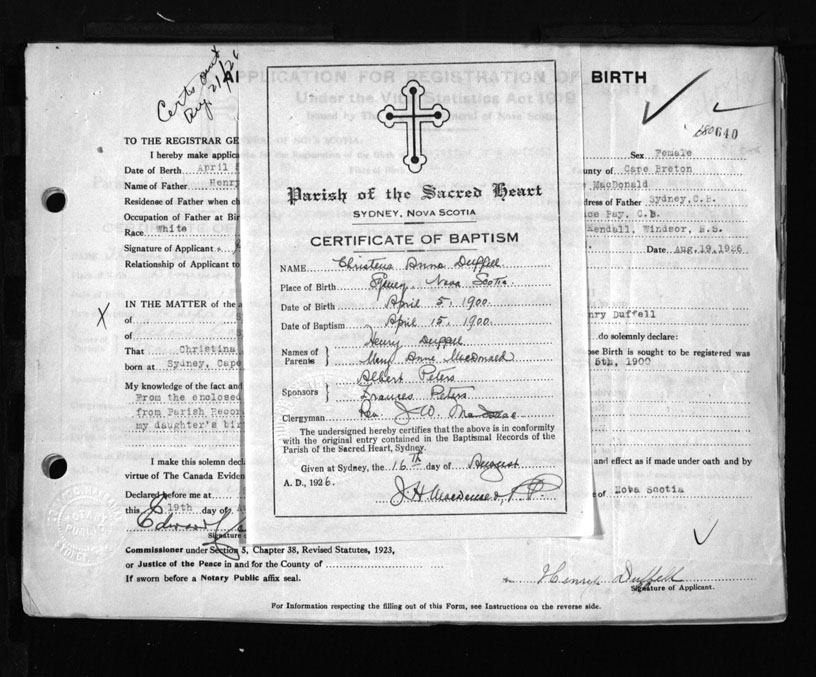 Certs out
Aug 21/26
APPLICATION FOR REGISTRATION OF BIRTH
Under the Vital Statistics Act 1919
640
TO THE REGISTRAR GE
I hereby make applica
Sex Female
Date of Birth April
unty of Cape Breton
Name of Father Henry
MacDonald
Residense of Father when ch
dress of Father Sydney, C.B.
Occupation of Father at Bir
ce Bay, C.B.
Race White
Kendall, Windsor, N.S.
Signature of Applicant
Date Aug.19,1926
Relationship of Applicant to
IN THE MATTER of the a
of
nry Duffell
of
do solemnly declare:
That Christina
ose Birth is sought to be registered was
born at Sydney, Cape
5th, 1900
My knowledge of the fact and
From the enclosed
from Parish Recor
my daughter's bir
I make this solemn decl
and effect as if made under oath and by
virtue of The Canada Eviden
Declared before me at
e of Nova Scotia
this 19th day of
Edward
Signature o
Commissioner under Section 5, Chapter 38, Revised Statutes, 1923,
or Justice of the Peace in and for the County of
If sworn before a Notary Public affix seal.
Henry Duffell
Signature of Applicant.
For Information respecting the filling out of this Form, see Instructions on the reverse side.
Parish of the Sacred Heart
SYDNEY, NOVA SCOTIA
CERTIFICATE OF BAPTISM
NAME Christena Anna Duffell
Place of Birth Sydney, Nova Scotia
Date of Birth April 5, 1900
Date of Baptism April 15, 1900.
Names of Parents } Henry Duffell
Mary Anne MacDonald
Sponsors } Albert Peters
Frances Peters
Clergyman Rev J. W. MacIsaac
The undersigned hereby certifies that the above is in conformity
with the original entry contained in the Baptismal Records of the
Parish of the Sacred Heart, Sydney.
Given at Sydney, the 16th day of August
A. D., 1926.